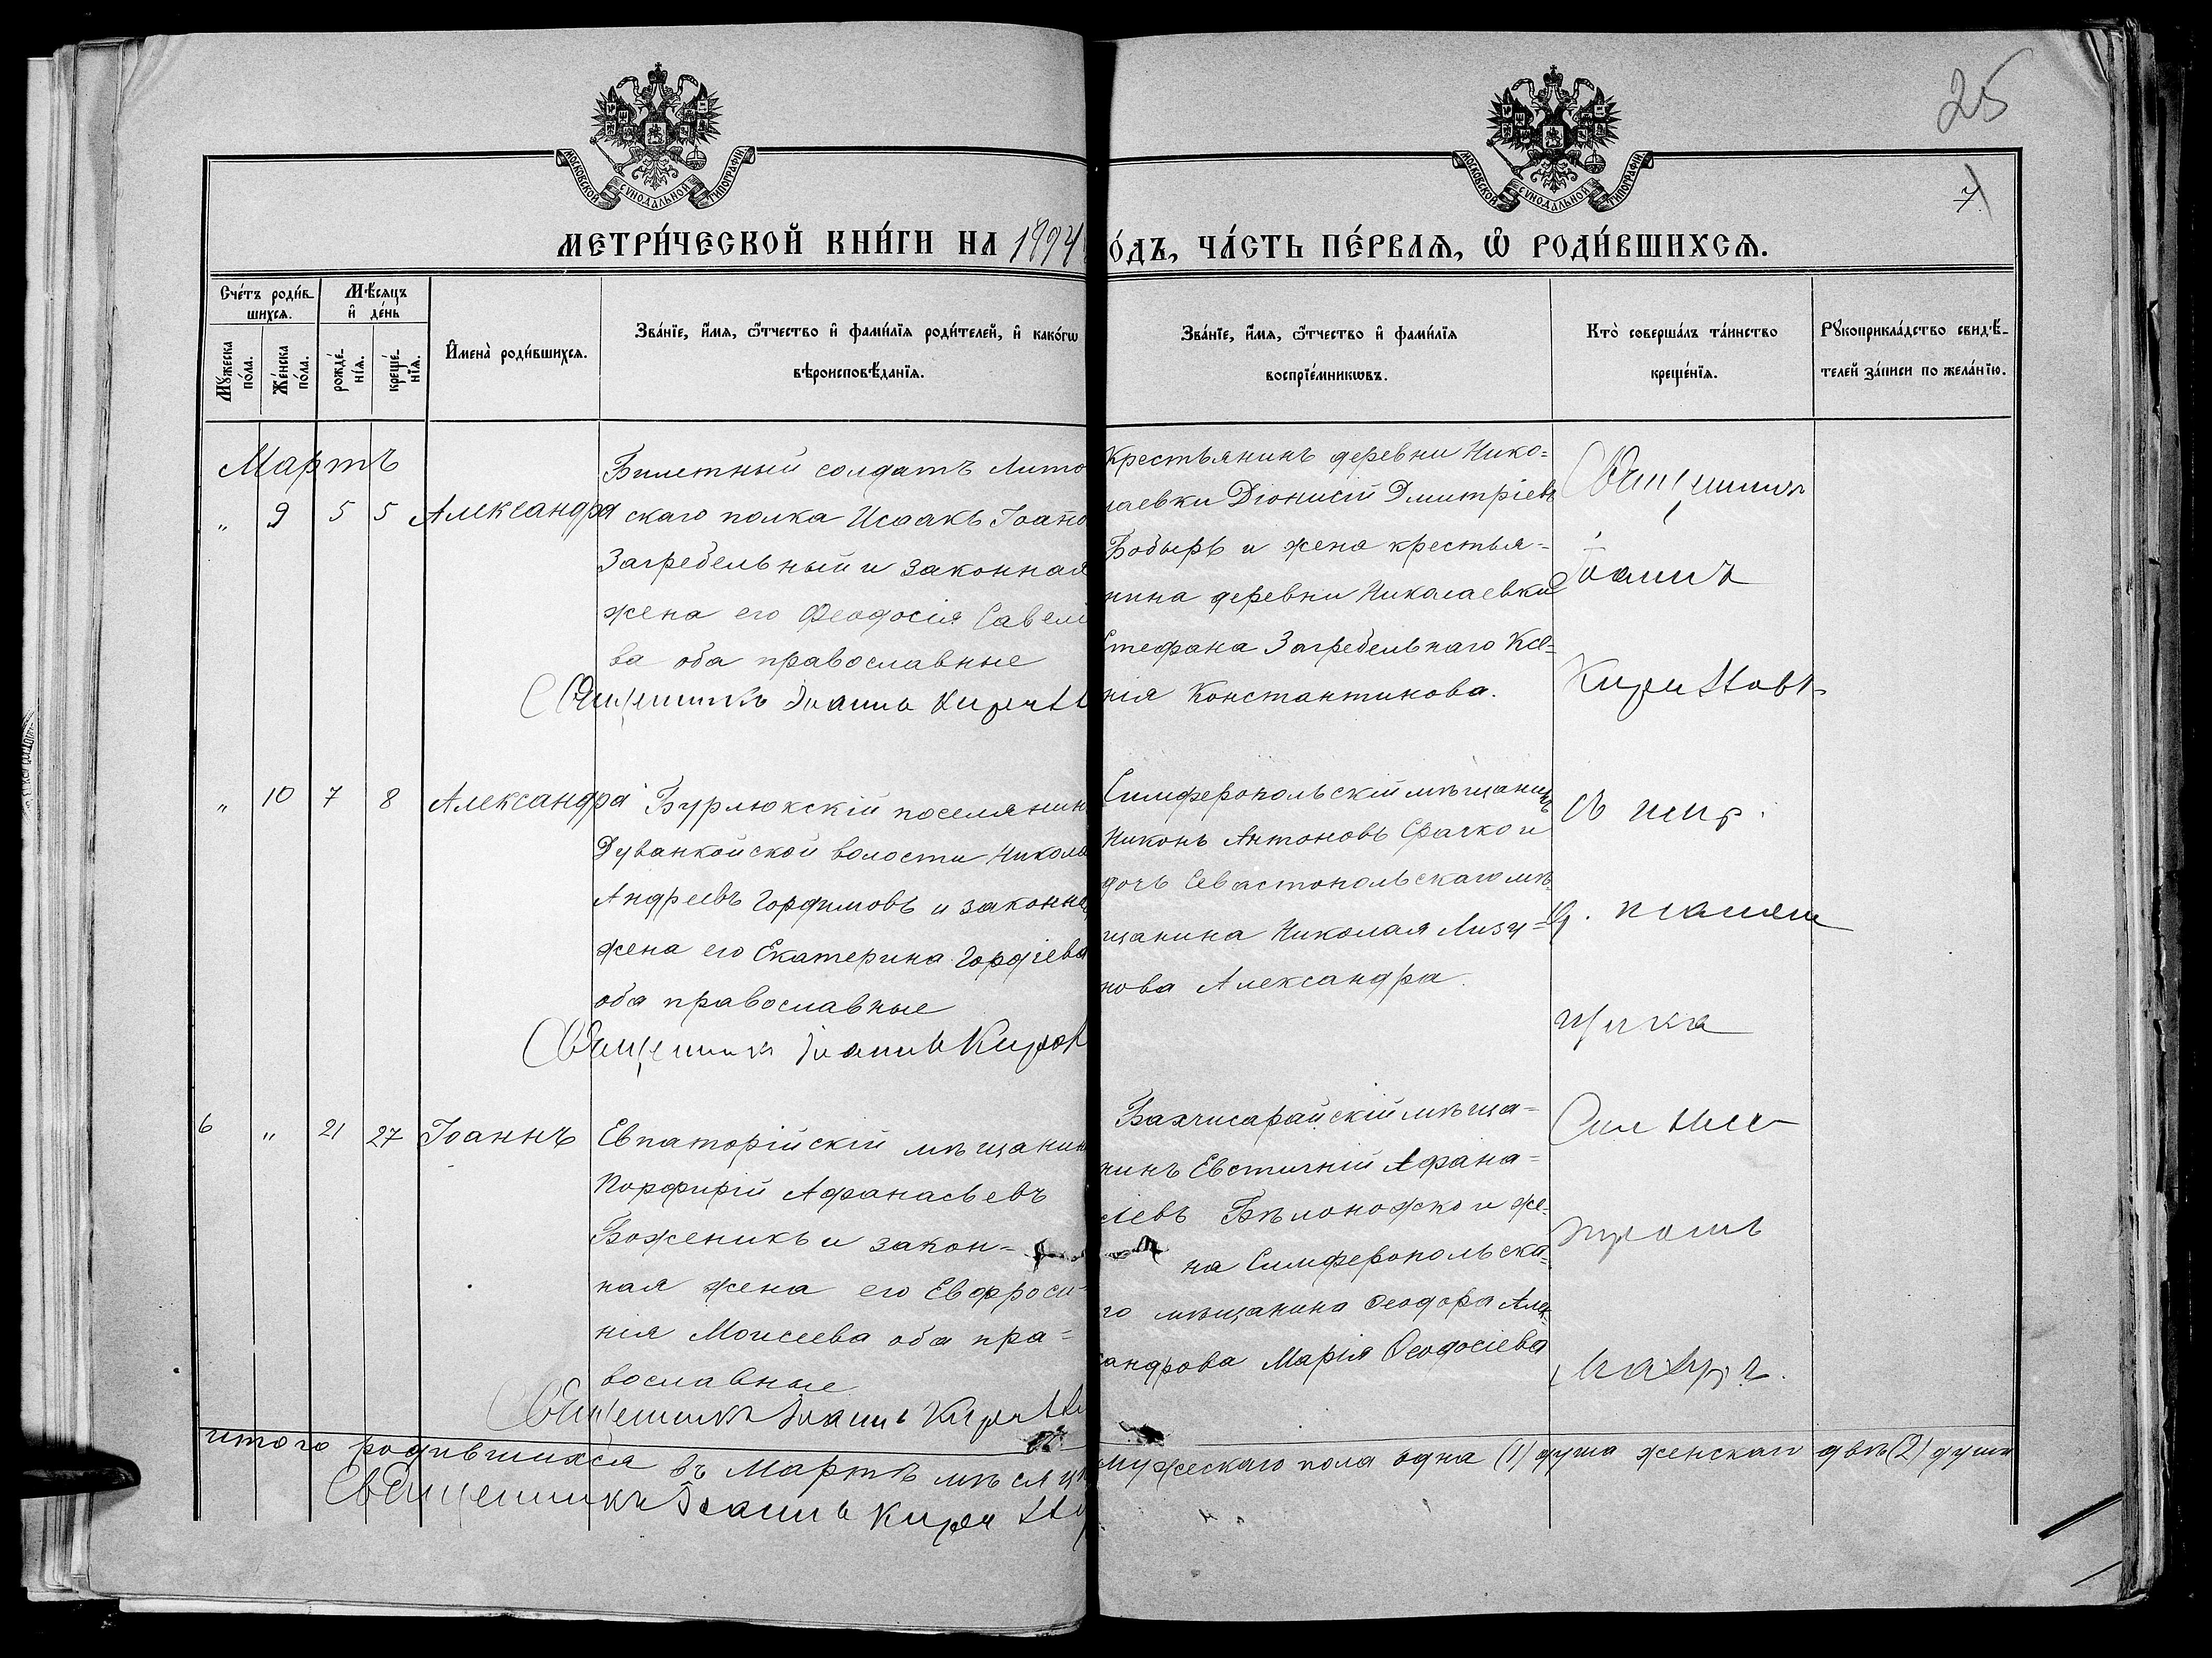 25
7
МОСКОВСКОЙ СѴНОДАЛЬНОЙ ТИПОГРАФІИ.
МОСКОВСКОЙ СѴНОДАЛЬНОЙ ТИПОГРАФІИ.
МЕТРИ́ЧЕСКОЙ КНИ́ГИ НА 1894
О́ДЪ, ЧА́СТЬ ПЕ́РВАѦ, Ѡ҆ РОДИ́ВШИХСѦ.
Сче́тъ роди́в-
шихсѧ.
Мꙋ́жеска по́ла.
Же́нска по́ла.
Мѣ́сяцъ
и҆ де́нь
рожде́-
нїѧ.
креще́-
нїѧ.
И҆мена̀ роди́вшихсѧ.
Зва́нїе, и҆́мѧ, ѻ҆́тчество и҆ фами́лїѧ роди́телей, и҆ како́гѡ
вѣроисповѣ́данїѧ.
Зва́нїе, и҆́мѧ, ѻ҆́тчество и҆ фами́лїѧ
воспрїе́мникѡвъ.
Кто̀ соверша́лъ та́инство
креще́нїѧ.
Рꙋкоприкла́дство свидѣ́-
телей за́писи по жела́нїю.
Мартъ
" 9 5 5 Александра
Билетный солдатъ Лито
скаго полка Исаакъ Іоанно
Загребельный и законная
жена его Феодосія Савель
ва оба православные
Священникъ Іоаннъ
Крестьянинъ деревни Нико=
лаевки Діонисій Дмитріевъ
Бобырь и жена крестья=
нина деревни Николаевки
Стефана Загребельнаго Ксе=
нія Константинова.
Священникъ
Іоаннъ
" 10 7 8 Александра
Бурлюкскій поселянин
Дуванкойской волости Никола
Андреевъ и законна
жена его Екатерина Гордіева
оба православные
Священникъ Іоаннъ
Симферопольскій мѣщанинъ
Никонъ Антоновъ и
дочь Севастопольскаго мѣ
щанина Николая Лизу=
нова Александра.
6 " 21 27 Іоаннъ
Евпаторійскій мѣщанин
Порфирій Афанасьевъ
Боженикъ и закон=
ная жена его Евфроси-
нія Моисеева оба пра=
вославные
Священникъ Іоаннъ
Бахчисарайскій мѣща=
нинъ Евстигній Афана=
сіевъ Бѣлоножко и же-
на Симферопольска=
го мѣщанина Феодора Алек=
сандрова Марія Феодосіева
итого родившихся въ Мартѣ мѣсяц мужескаго пола одна (1) душа женскаго двѣ (2) души
Священникъ Іоаннъ